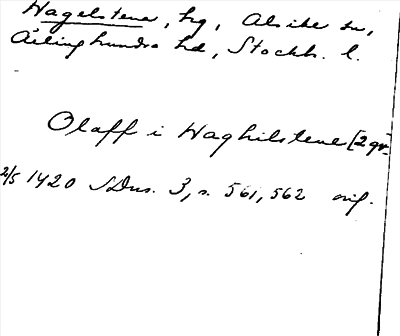 Hagelstena, hg, Alsike sn,
Ärlinghundra hd, Stockh. l.
Olaff i Haghilstene [2 gr.]
2/5 1420 SDns. 3, s. 561, 562 orig.